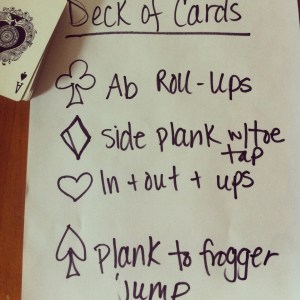 Deck of Cards
A
Ab Roll-Ups
side plank w/toe
tap
In + out + ups
plank to frogger
jump